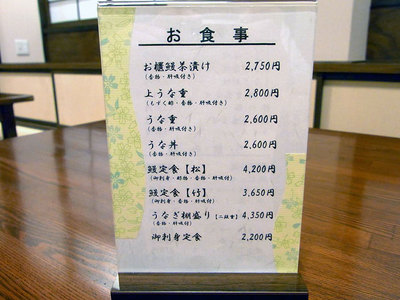 お食事
お櫃鰻茶漬け 2,750円
(香物・肝吸付き)
上うな重 2,800円
(もずく酢・香物・肝吸付き)
うな重 2,600円
(香物・肝吸付き)
うな丼 2,600円
(香物・肝吸付き)
鰻定食【松】 4,200円
(御刺身・酢物・香物・肝吸付)
鰻定食【竹】 3,650円
(御刺身・香物・肝吸付)
うなぎ棚盛り【二段重】 4,350円
御刺身定食 2,200円